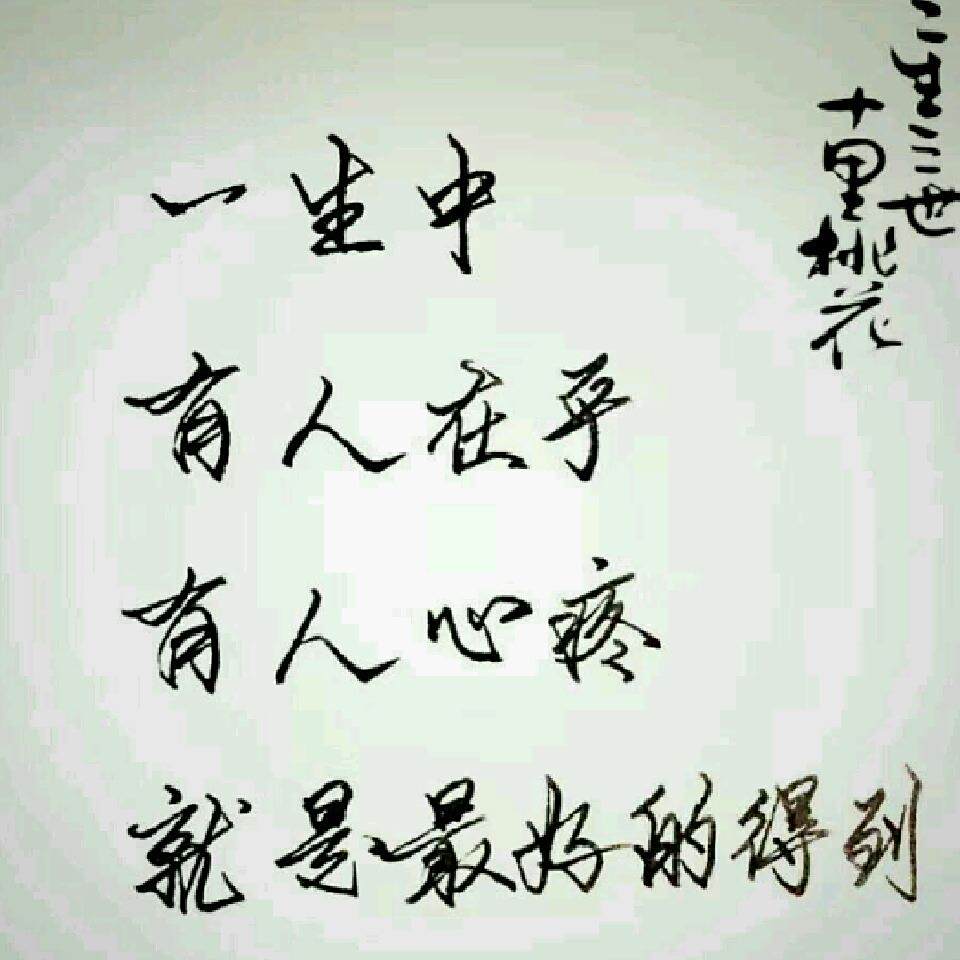 一生中
有人在乎
有人心疼
就是最好的得到
三生三世
十里桃花